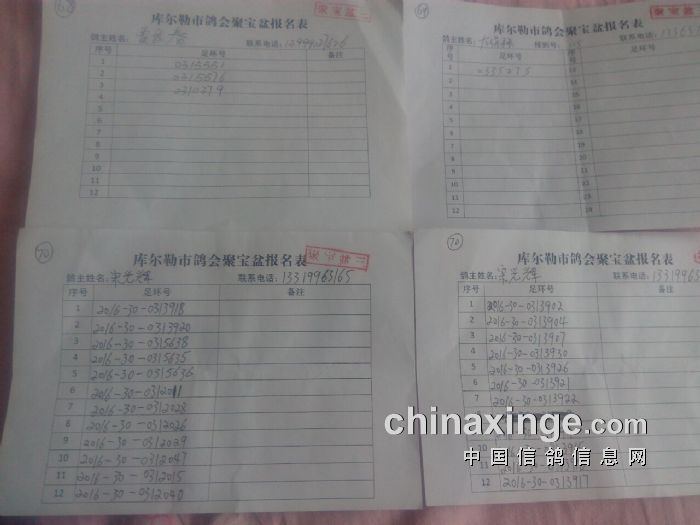 库尔勒市鸽会聚宝盆报名表
聚宝盆二
鸽主姓名:
联系电话:
序号 足环号 备注
1 0315551
2 0315576
3
4
5
6
7
8
9
10
11
12
69
库尔勒市鸽会聚宝盆报名表
聚宝盆
鸽主姓名:
棚号:
联系电话:
序号 足环号 序号 足环号
1 0335275
2
3
4
5
6
7
8
9
10
11
12
70
库尔勒市鸽会聚宝盆报名表
鸽主姓名: 宋光辉 联系电话: 13319963165
序号 足环号 备注
1 2016-30-0313918
2 2016-30-0313920
3 2016-30-0315638
4 2016-30-0315635
5 2016-30-0315636
6 2016-30-0312011
7 2016-30-0312028
8 2016-30-0312026
9 2016-30-0312029
10 2016-30-0312047
11 2016-30-0312015
12 2016-30-0312040
70
库尔勒市鸽会聚宝盆报名表
鸽主姓名: 宋光辉 联系电话: 13319963165
序号 足环号 备注
1 2016-30-0313902
2 2016-30-0313904
3 2016-30-0313907
4 2016-30-0313930
5 2016-30-0313926
6 2016-30-0313921
7 2016-30-0313922
10
11
12 2016-30-0313917
chinaxinge.com
中国信鸽信息网